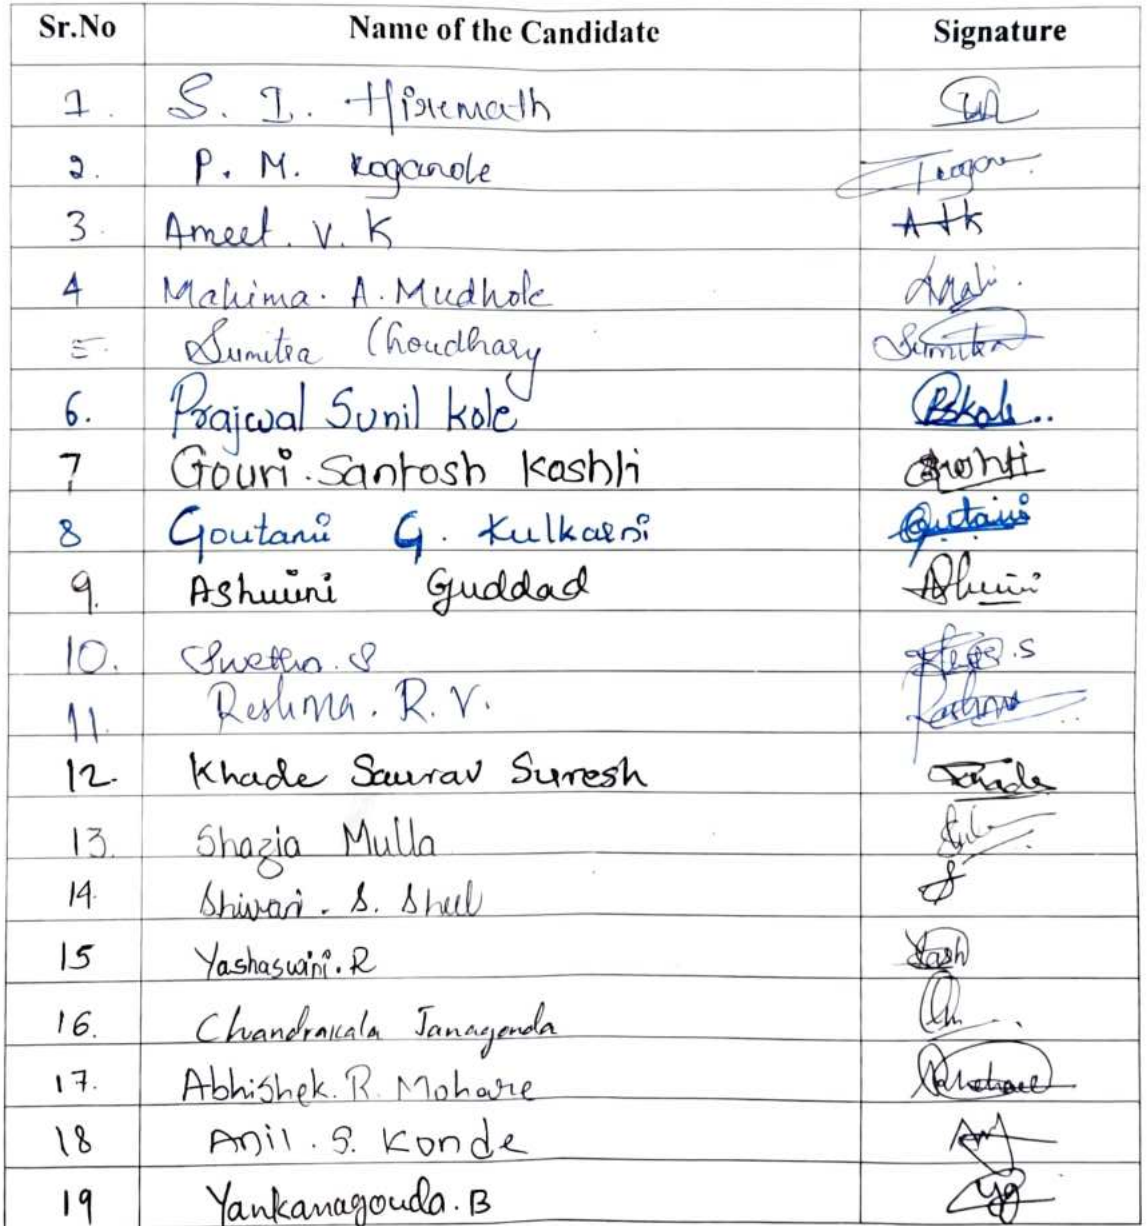 Sr.No Name of the Candidate Signature
1. S. I. Hiremath
2. P. M. Koganole
3. Ameet. V. K
4 Mahima. A. Mudhole
5. Sumitra Choudhary Sumitra
6. Prajwal Sunil Kole PSKole..
7 Gouri. Santosh Koshti
8 Goutami G. Kulkarni Goutami
9. Ashwini Guddad
10. Swetha. S
11. Reshma. R. V. Reshma
12. Khade Saurav Suresh Khade
13. Shazia Mulla
14. Shivani. S. Sheel S
15 Yashaswini. R Yash
16. Chandrakala Janagonda
17. Abhishek. R. Mohare
18 Anil. S. Konde
19 Yankanagouda. B Yg